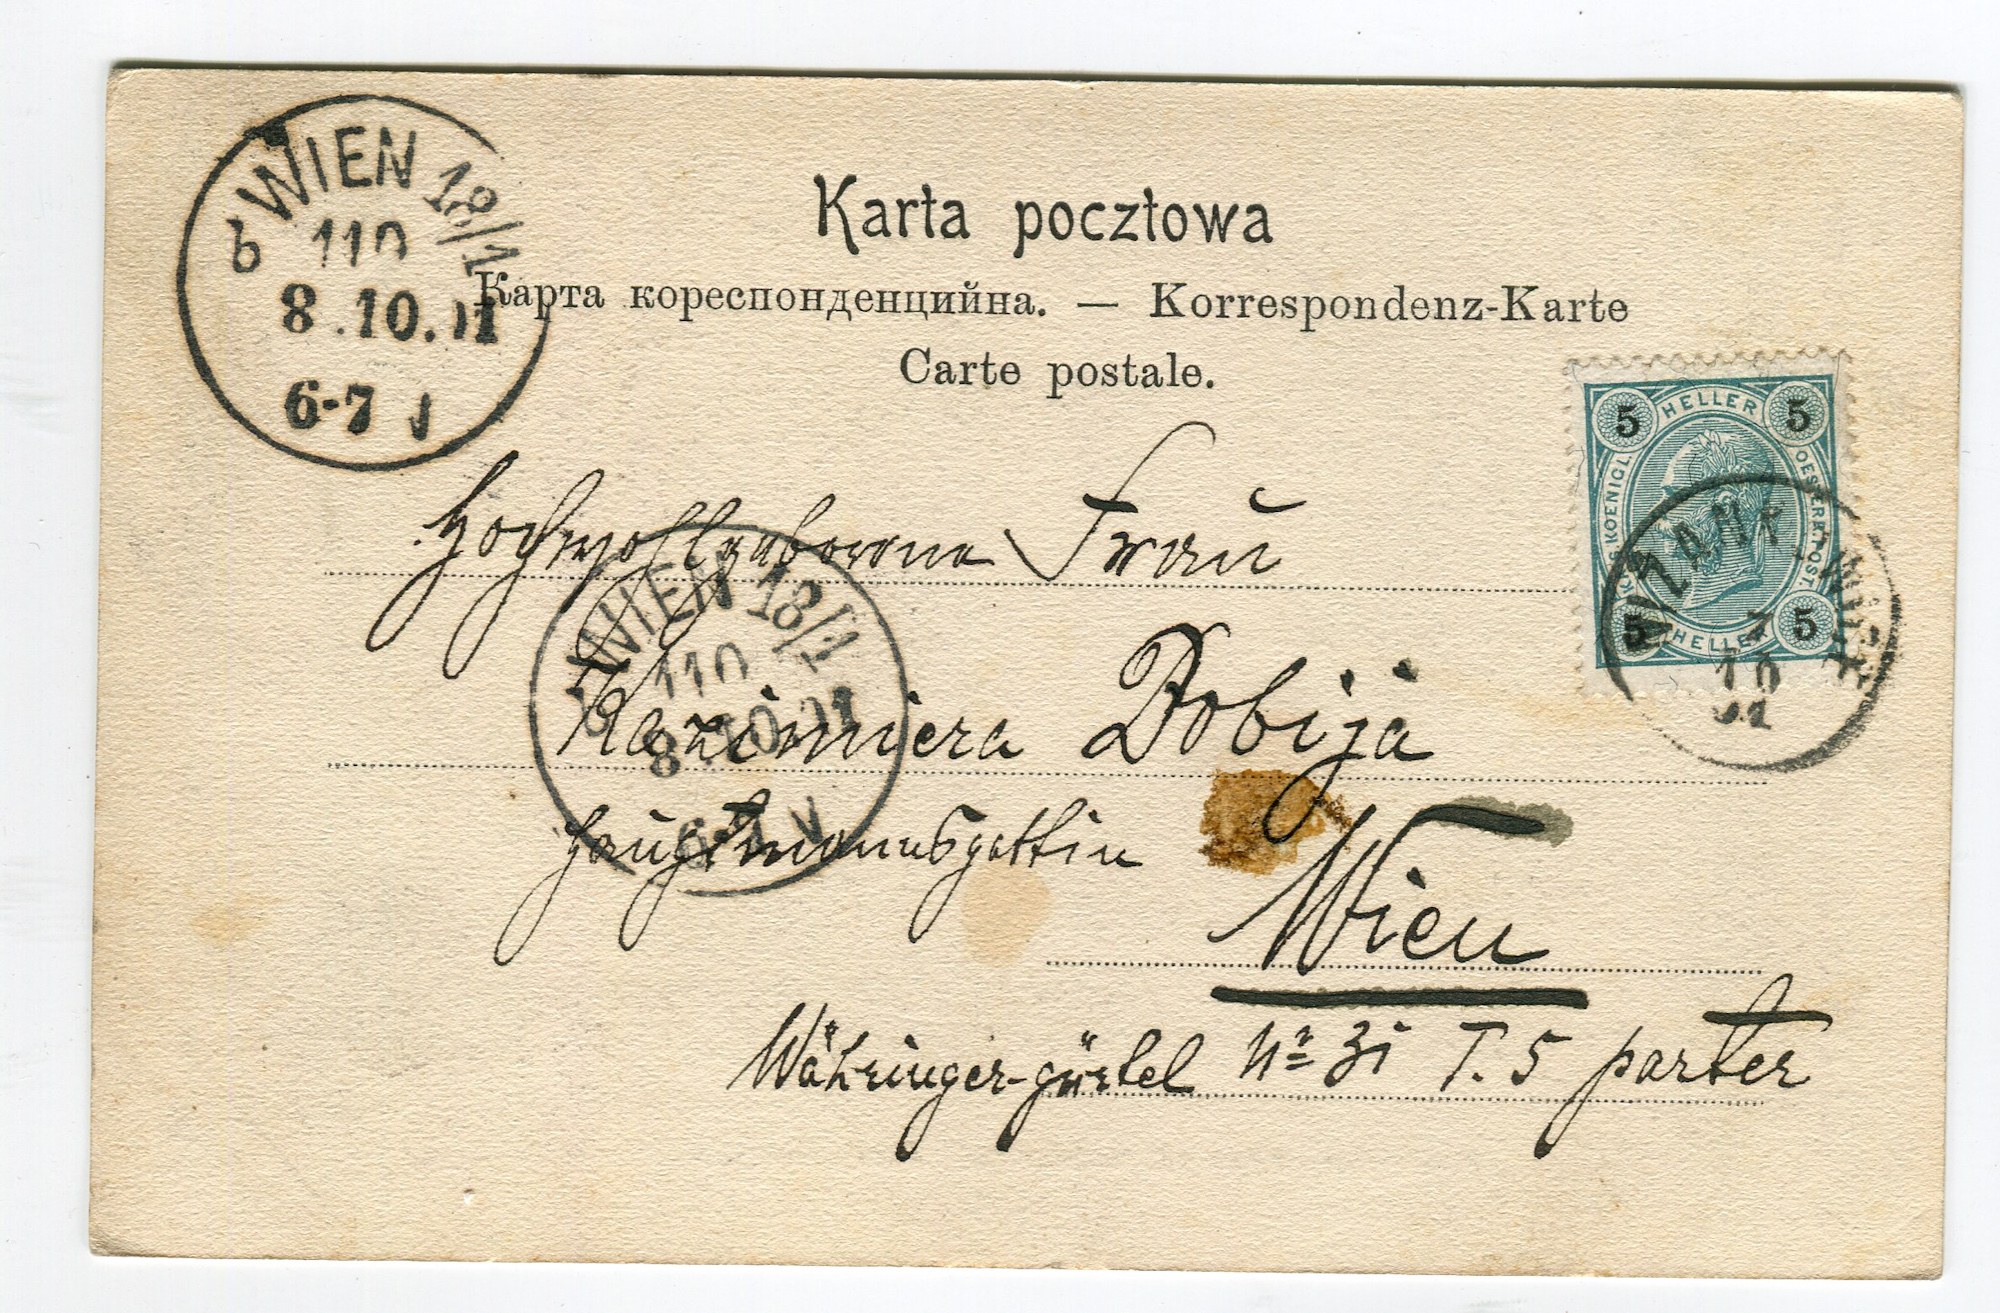 Karta pocztowa
Карта кореспонденцийна. — Korrespondenz-Karte
Carte postale.
WIEN 18/1
b
110
8.10.01
6-7
5 HELLER 5
KOENIGL.
OESTERR. POST.
5 HELLER 5
7
10
01
Hochwohlgeborene Frau
WIEN 18/1
110
8.10.01
Kazimiera Dobija
Hauptmannsgattin
Wien
Währinger-gürtel Nr 31 T. 5 parter